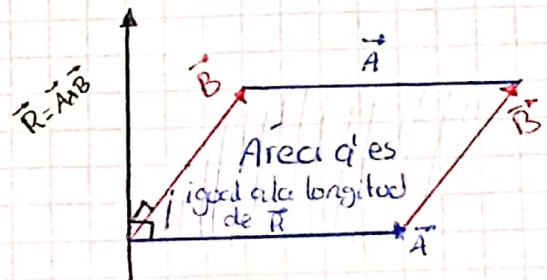 R = A x B
B
A
B
Área q' es
igual a la longitud
de R
A